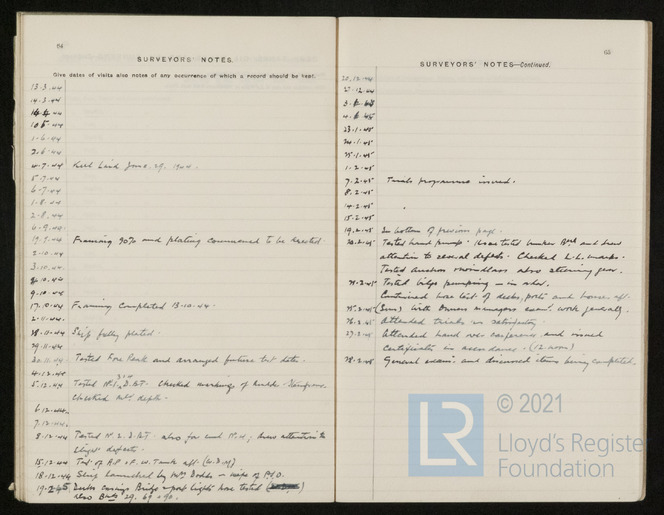 64
SURVEYORS' NOTES.
Give dates of visits also notes of any occurrence of which a record should be kept.
13.3.44
14.3.44
.44
10.5.44
1.6.44
2.6.44
4.7.44 Keel Laid June. 29. 1944.
5.7.44
6.7.44
1.8.44
2.8.44
6.9.44
19.9.44 Framing 90% and plating commenced to be erected.
2.10.44
3.10.44
.10.44
9.10.44
17.10.44 Framing Completed 13.10.44.
2.11.44
28.11.44 Ship fully plated.
29.11.44
30.11.44 Tested Fore Peak and arranged future test dates.
4.12.44
5.12.44 Tested D.B.T. Checked markings of
checked depth.
6.12.44
7.12.44
8.12.44 Tested No 2. D.B.T. also for and drew attention to
defects.
15.12.44 Test of A.P. & F.W. Tank aft. (W.D.)
18.12.44 Ship launched by Mrs Dodds – wife of
19.2.45 Decks casings Bridge & port lights hose tested
also 29. 69 & 90.
65
SURVEYORS' NOTES—Continued.
20.12.44
.12.44
.45
.45
23.1.45
24.1.45
25.1.45
1.2.45
7.2.45 Trials programme issued.
8.2.45
14.2.45
15.2.45
19.2.45 In bottom of previous page.
20.2.45 Tested hand pump. Hose tested bunker Bhd and drew
attention to several defects. Checked L.L. marks.
Tested anchor windlass also steering gear.
.2.45 Tested bilge pumping – in order.
Continued hose test of decks, ports and house aft.
25.2.45 (Sun) With Owners managers exam. work generally.
26.2.45 Attended trials – satisfactory.
27.2.45 Attended hand over conference and issued
certificates in accordance. (12 noon)
28.2.45 General exam. and discussed items being completed.
LR
© 2021
Lloyd's Register
Foundation